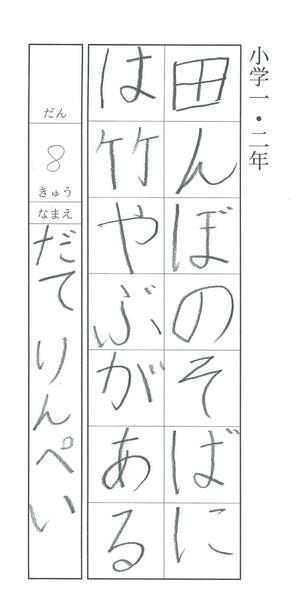 小学一・二年
田んぼのそばに
は竹やぶがある
だん
8
きゅう
なまえ
だてりんぺい